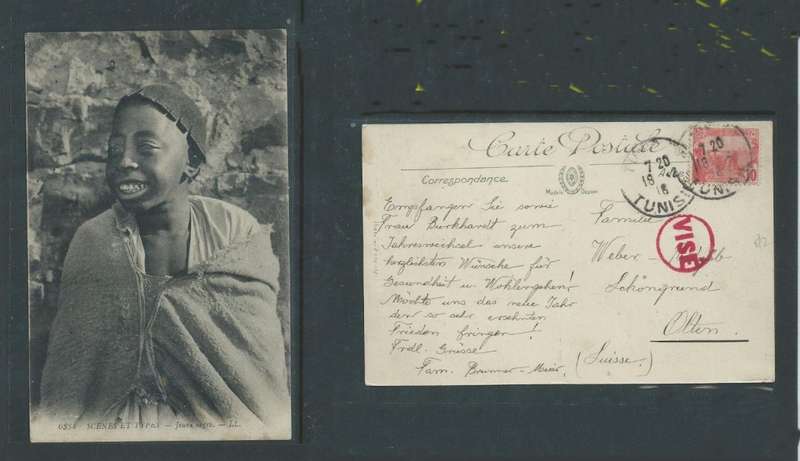 6354 SCÈNES ET TYPES — Jeune nègre. — LL.
Carte Postale
Correspondance
Modèle Déposé
Empfangen Sie sowie
Frau Burkhardt zum
Jahreswechsel unsere
herzlichsten Wünsche für
Gesundheit u. Wohlergehen!
Möchte uns das neue Jahr
den so sehr ersehnten
Frieden bringen!
Frdl. Grüsse
Fam. Brunner-Meier.
7 20
18
16
TUNIS
7 20
18
TUNIS
10
VISÉ
Familie
Weber
Schöngrund
Olten.
(Suisse)